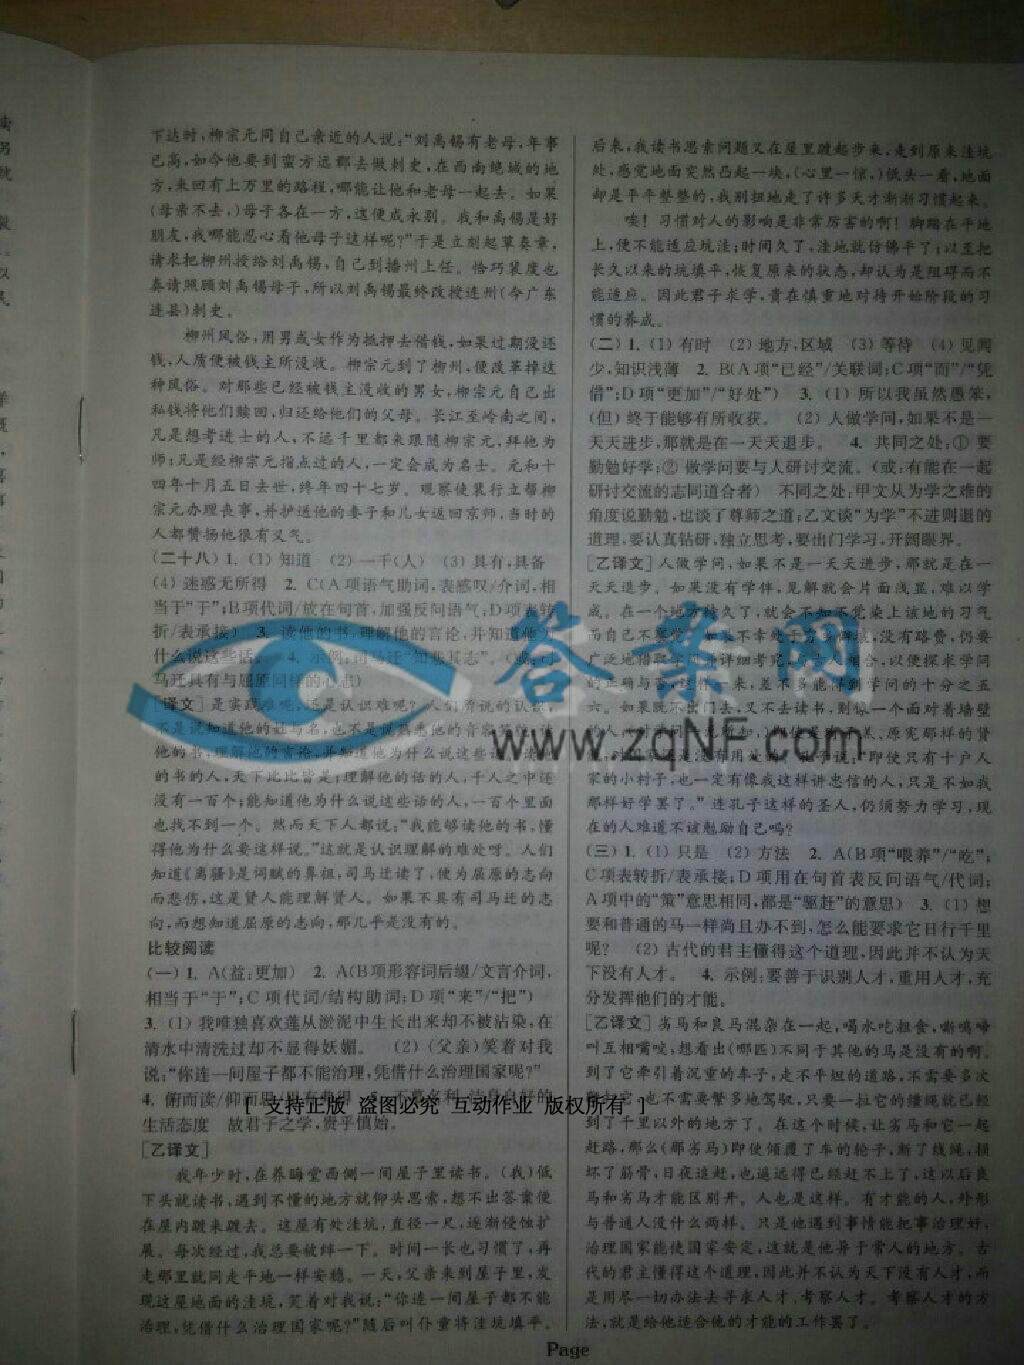 下达时,柳宗元同自己亲近的人说:“刘禹锡有老母,年事
已高,如今他要到蛮方远郡去做刺史,在西南绝域的地
方,来回有上万里的路程,哪能让他和老母一起去。如果
(母亲不去,)母子各在一方,这便成永别。我和禹锡是好
朋友,我哪能忍心看他母子这样呢?”于是立刻起草奏章,
请求把柳州授给刘禹锡,自己到播州上任。恰巧裴度也
奏请照顾刘禹锡母子,所以刘禹锡最终改授连州(今广东
连县)刺史。
柳州风俗,用男或女作为抵押去借钱,如果过期没还
钱,人质便被钱主所没收。柳宗元到了柳州,便改革掉这
种风俗。对那些已经被钱主没收的男女,柳宗元自己出
私钱将他们赎回,归还给他们的父母。长江至岭南之间,
凡是想考进士的人,不远千里都来跟随柳宗元,拜他为
师;凡是经柳宗元指点过的人,一定会成为名士。元和十
四年十月五日去世,终年四十七岁。观察使裴行立帮柳
宗元办理丧事,并护送他的妻子和儿女返回京师,当时的
人都赞扬他很有义气。
(二十八) 1. (1) 知道 (2) 一千(人) (3) 具有,具备
(4) 迷惑无所得 2. C(A项语气助词,表感叹/介词,相
当于“于”;B项代词/放在句首,加强反问语气;D项表转
折/表承接) 3. 读他的书,理解他的言论,并知道他为
什么说这些话。 4. 示例:司马迁“知悲其志”。(或:司
马迁具有与屈原同样的心志)
[译文] 是实践难呢,还是认识难呢?人们所说的认识,
不是说知道他的姓与名,也不是说熟悉他的音容笑貌,读
他的书,理解他的言论,并知道他为什么说这些
的书的人,天下比比皆是;理解他的话的人,千人之中还
没有一百个;能知道他为什么说这些话的人,一百个里面
也找不到一个。然而天下人都说:“我能够读他的书,懂
得他为什么要这样说。”这就是认识理解的难处呀。人们
知道《离骚》是词赋的鼻祖,司马迁读了,便为屈原的志向
而悲伤,这是贤人能理解贤人。如果不具有司马迁的志
向,而想知道屈原的志向,那几乎是没有的。
比较阅读
(一) 1. A(益:更加) 2. A(B项形容词后缀/文言介词,
相当于“于”;C项代词/结构助词;D项“来”/“把”)
3. (1) 我唯独喜欢莲从淤泥中生长出来却不被沾染,在
清水中清洗过却不显得妖媚。 (2) (父亲)笑着对我
说:“你连一间屋子都不能治理,凭借什么治理国家呢?”
4. 俯而读/仰而思
生活态度 故君子之学,贵乎慎始。
[乙译文]
我年少时,在养晦堂西侧一间屋子里读书。(我)低
下头就读书,遇到不懂的地方就仰头思索,想不出答案便
在屋内踱来踱去。这屋有处洼坑,直径一尺,逐渐侵蚀扩
展。每次经过,我总要被绊一下。时间一长也习惯了,再
走那里就同走平地一样安稳。一天,父亲来到屋子里,发
现这屋地面的洼坑,笑着对我说:“你连一间屋子都不能
治理,凭借什么治理国家呢?”随后叫仆童将洼坑填平。
后来,我读书思索问题又在屋里踱起步来,走到原来洼坑
处,感觉地面突然凸起一块,(心里一惊,)低头一看,地面
却是平平整整的,我别扭地走了许多天才渐渐习惯起来。
唉!习惯对人的影响是非常厉害的啊!脚踏在平地
上,便不能适应坑洼;时间久了,洼地就仿佛平了;以至把
长久以来的坑填平,恢复原来的状态,却认为是阻碍而不
能适应。因此君子求学,贵在慎重地对待开始阶段的习
惯的养成。
(二) 1. (1) 有时 (2) 地方,区域 (3) 等待 (4) 见闻
少,知识浅薄 2. B(A项“已经”/关联词;C项“而”/“凭
借”;D项“更加”/“好处”) 3. (1) 所以我虽然愚笨,
(但) 终于能够有所收获。 (2) 人做学问,如果不是一
天天进步,那就是在一天天退步。 4. 共同之处:① 要
勤勉好学;② 做学问要与人研讨交流。(或:有能在一起
研讨交流的志同道合者) 不同之处:甲文从为学之难的
角度说勤勉,也谈了尊师之道;乙文谈“为学”不进则退的
道理,要认真钻研,独立思考,要出门学习,开阔眼界。
[乙译文] 人做学问,如果不是一天天进步,那就是在一
天天退步。如果没有学伴,见解就会片面浅显,难以学
成。在一个地方待久了,就会不知不觉染上该地的习气
而自己不察觉。如果不幸处于穷乡僻壤,没有路费,仍要
广泛地猎取学问并详细考究,,以便探求学问
的正确与否,这样一来,差不多能得到学问的十分之五
六。如果既不出门去,又不去读书,则像一个面对着墙壁
的人原宪那样的贤
子说:“即使只有十户人
家的小村子,也一定有像我这样讲忠信的人,只是不如我
那样好学罢了。”连孔子这样的圣人,仍须努力学习,现
在的人难道不该勉励自己吗?
(三) 1. (1) 只是 (2) 方法 2. A(B项“喂养”/“吃”;
C项表转折/表承接;D项用在句首表反问语气/代词;
A项中的“策”意思相同,都是“驱赶”的意思) 3. (1) 想
要和普通的马一样尚且办不到,怎么能要求它日行千里
呢? (2) 古代的君主懂得这个道理,因此并不认为天
下没有人才。 4. 示例:要善于识别人才,重用人才,充
分发挥他们的才能。
[乙译文] 劣马和良马混杂在一起,喝水吃粗食,嘶鸣啼
叫互相嘴咬,想看出(哪匹)不同于其他的马是没有的啊。
到了它牵引着沉重的车子,走不平坦的道路,不需要多次
它,也不需要繁多地驾驭,只要一拉它的缰绳就已经
到了千里以外的地方了。在这个时候,让劣马和它一起
赶路,那么(那劣马)即使倾覆了车的轮子,断了线绳,损
坏了筋骨,日夜追赶,也遥远得已经赶不上了,这以后良
马和劣马才能区别开。人也是这样。有才能的人,外形
与普通人没什么两样。只是他遇到事情能把事治理好,
治理国家能使国家安定,这就是他异于常人的地方。古
代的君主懂得这个道理,因此并不认为天下没有人才,而
是用尽一切办法去寻求人才、考察人才。考察人才的方
法,就是给他适合他的才能的工作罢了。
答案网
www.zqNF.com
[ 支持正版 盗图必究 互动作业 版权所有 ]
Page